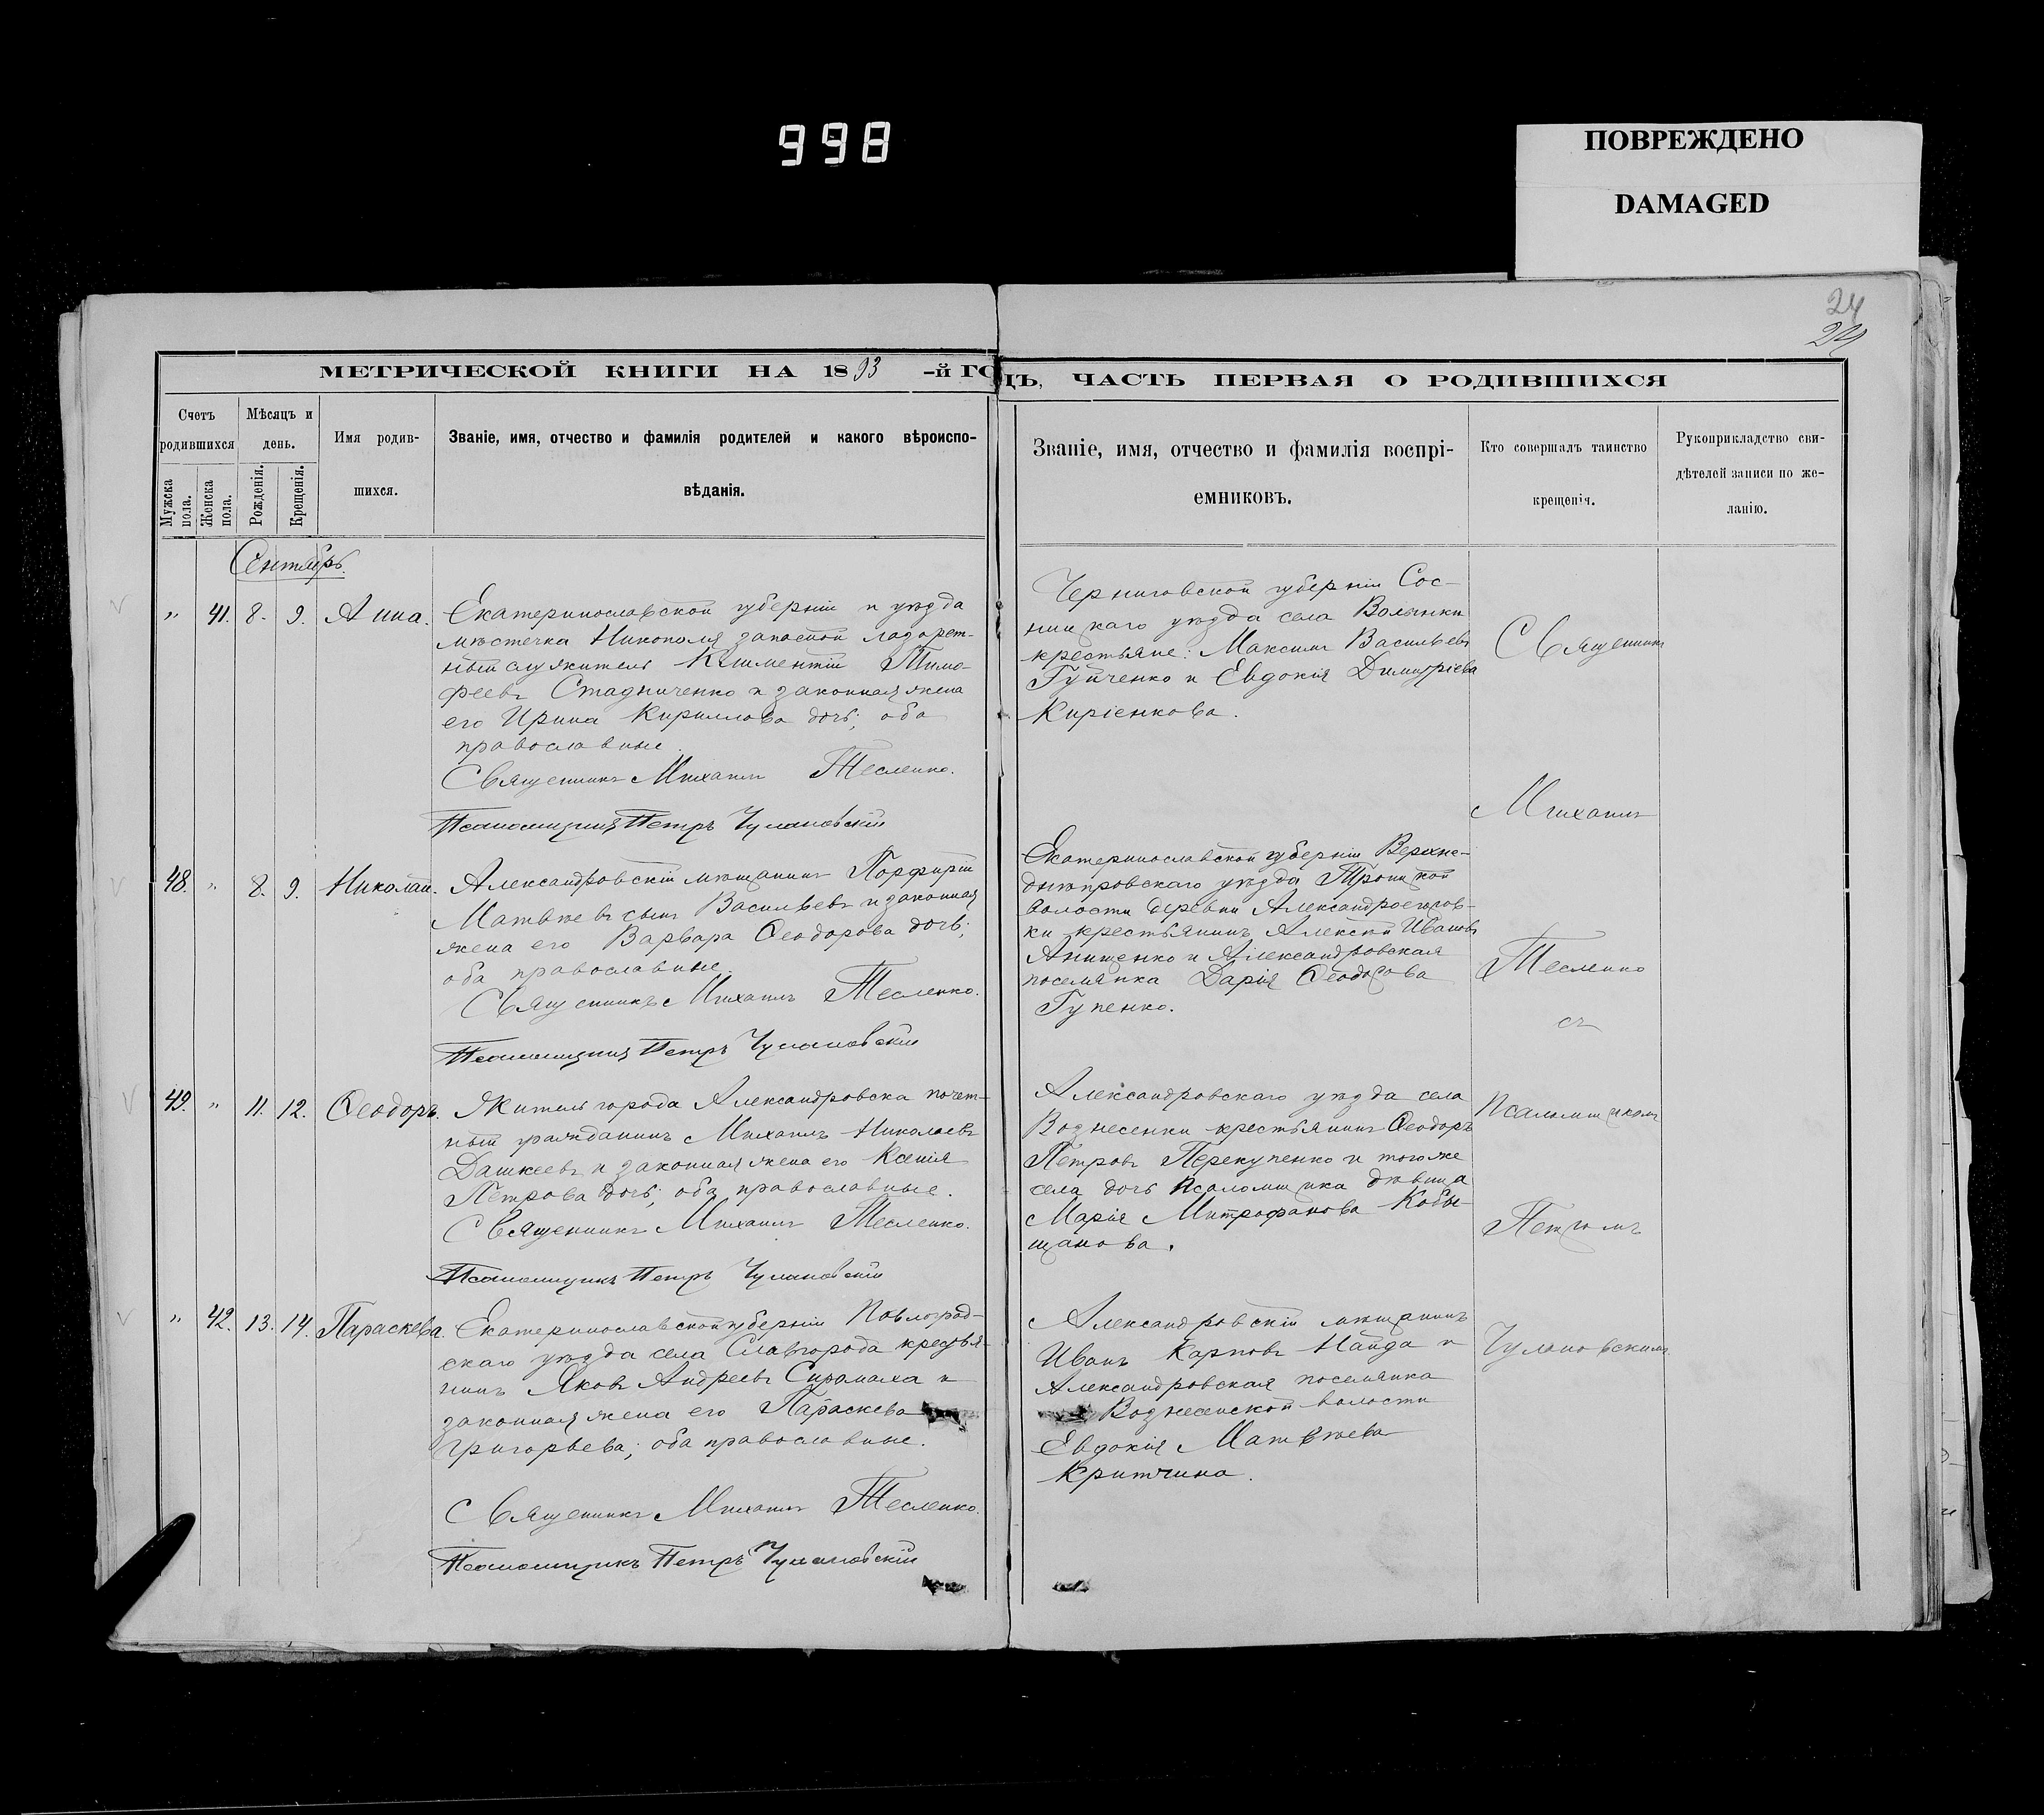 998
ПОВРЕЖДЕНО
DAMAGED
24
МЕТРИЧЕСКОЙ КНИГИ НА 1893 -й ГОДЪ, ЧАСТЬ ПЕРВАЯ О РОДИВШИХСЯ
Счетъ родившихся
Мужска пола.
Женска пола.
Мѣсяцъ и день.
Рожденія.
Крещенія.
Имя родив-
шихся.
Званіе, имя, отчество и фамилія родителей и какого вѣроиспо-
вѣданія.
Званіе, имя, отчество и фамилія воспрі-
емниковъ.
Кто совершалъ таинство
крещенія.
Рукоприкладство сви-
дѣтелей записи по же-
ланію.
Сентябрь.
" 41. 8. 9. Анна.
Екатеринославской губерніи и уѣзда
мѣстечка Никополя запасной лазарет-
ный служитель Климентій Тимо-
феевъ Стадниченко и законная жена
его Ирина Кириллова дочь; оба
православные.
Священникъ Михаилъ Тесленко.
Псаломщикъ Петръ Чулановскій
Черниговской губерніи Сос-
ницкаго уѣзда села Волынки
крестьяне: Максимъ Васильевъ
Гуйченко и Евдокія Димитріева
Киріенкова.
48. " 8. 9. Николай.
Александровскій мѣщанинъ Порфирій
Матвѣевъ сынъ Васильевъ и законная
жена его Варвара Ѳеодорова дочь;
оба православные.
Священникъ Михаилъ Тесленко.
Псаломщикъ Петръ Чулановскій
Екатеринославской губерніи Верхне-
днѣпровскаго уѣзда Троицкой
волости деревни
ки крестьянинъ Алексѣй Ивановъ
Анищенко и Александровская
поселянка Дарія
Гупенко.
49. " 11. 12. Ѳеодоръ.
Житель города Александровска почет-
ный гражданинъ Михаилъ Николаевъ
Дашкеевъ и законная жена его Ксенія
Петрова дочь; оба православные.
Священникъ Михаилъ Тесленко.
Псаломщикъ Петръ Чулановскій
Александровскаго уѣзда села
Вознесенки крестьянинъ Ѳеодоръ
Петровъ Перекупенко и тогоже
села дочь псаломщика дѣвица
Марія Митрофанова Кобы-
щанова.
" 42. 13. 14. Параскева.
Екатеринославской губерніи Павлоград-
скаго уѣзда села Славгорода крестья-
нинъ Яковъ Андреевъ Сиромаха и
законная жена его Параскева
Григорьева; оба православные.
Священникъ Михаилъ Тесленко.
Псаломщикъ Петръ Чулановскій
Александровскій мѣщанинъ
Иванъ Карповъ Найда и
Александровская поселянка
Вознесенской волости
Евдокія Матвѣева
Критчина.
Священникъ
Михаилъ
Тесленко
съ
Псаломщикомъ
Петромъ
Чулановскимъ.